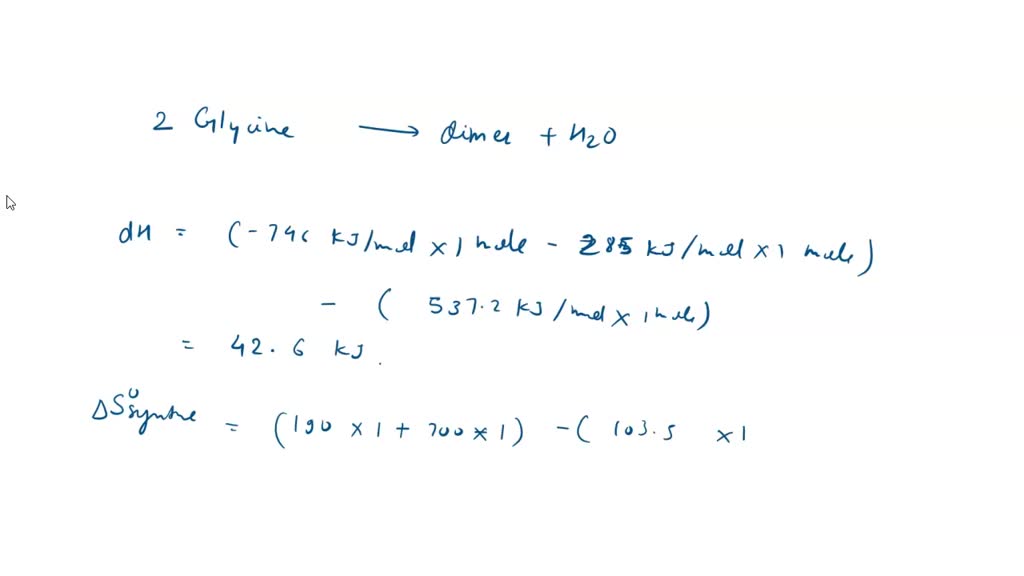 2 Glycine → dimer + H2O
dH = (-746 kJ/mol × 1 mole - 285 kJ/mol × 1 mole)
- ( 537.2 kJ/mol × 1 mole)
= 42.6 kJ.
ΔS⁰ = (190 × 1 + 700 × 1) - ( 103.5 × 1